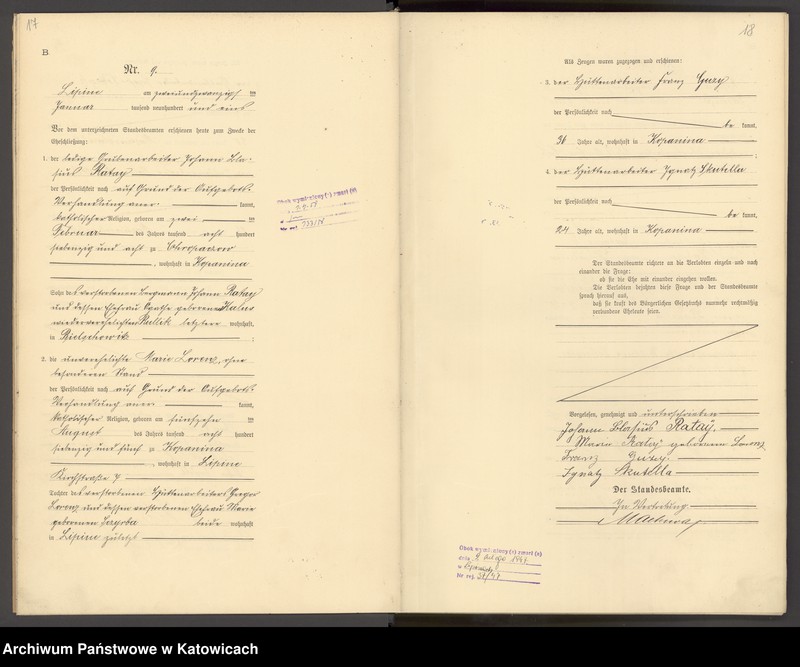 17
B.
Nr. 9.
Lipine am zweiundzwanzigsten
Januar tausend neunhundert und eins
Vor dem unterzeichneten Standesbeamten erschienen heute zum Zwecke der
Eheschließung:
1. der ledige Grubenarbeiter Johann Bla-
sius Ratay
der Persönlichkeit nach auf Grund der Aufgebots-
Verhandlung aner kannt,
katholischer Religion, geboren am zwei ten
Februar des Jahres tausend acht hundert
siebenzig und acht zu Chropaczow
, wohnhaft in Kopanina
Sohn des verstorbenen Bergmann Johann Ratay
und dessen Ehefrau Agathe geborenen
wiederverehelichten Kullik letztere wohnhaft,
in Bielschowitz ;
2. die unverehelichte Marie Lorenz, ohne
besonderen Stand
der Persönlichkeit nach auf Grund der Aufgebots-
Verhandlung aner kannt,
katholischer Religion, geboren am fünfzehn ten
August des Jahres tausend acht hundert
siebenzig und fünf zu Kopanina
, wohnhaft in Lipine
Kirchstraße 4
Tochter des verstorbenen Hüttenarbeiters Gregor
Lorenz und dessen verstorbenen Ehefrau Marie
geborenen beide wohnhaft
in Lipine zuletzt
Obok wymieniony(a) zmarł(a)
Nr rej.
18
Als Zeugen waren zugezogen und erschienen:
3. der Hüttenarbeiter Franz Guzy
der Persönlichkeit nach
be kannt,
36 Jahre alt, wohnhaft in Kopanina
;
4. der Hüttenarbeiter Ignatz Skutella
der Persönlichkeit nach
be kannt,
24 Jahre alt, wohnhaft in Kopanina
Der Standesbeamte richtete an die Verlobten einzeln und nach
einander die Frage:
ob sie die Ehe mit einander eingehen wollen.
Die Verlobten bejahten diese Frage und der Standesbeamte
sprach hierauf aus,
daß sie kraft des Bürgerlichen Gesetzbuchs nunmehr rechtmäßig
verbundene Eheleute seien.
Vorgelesen, genehmigt und unterschrieben
Johann Blasius Ratay.
Marie Ratay geborenen Lorenz
Franz Guzy.
Ignatz Skutella
Der Standesbeamte.
In Vertretung.
Obok wymieniony(a) zmarł(a)
dnia 1947
w
Nr rej. 31/47
Archiwum Państwowe w Katowicach